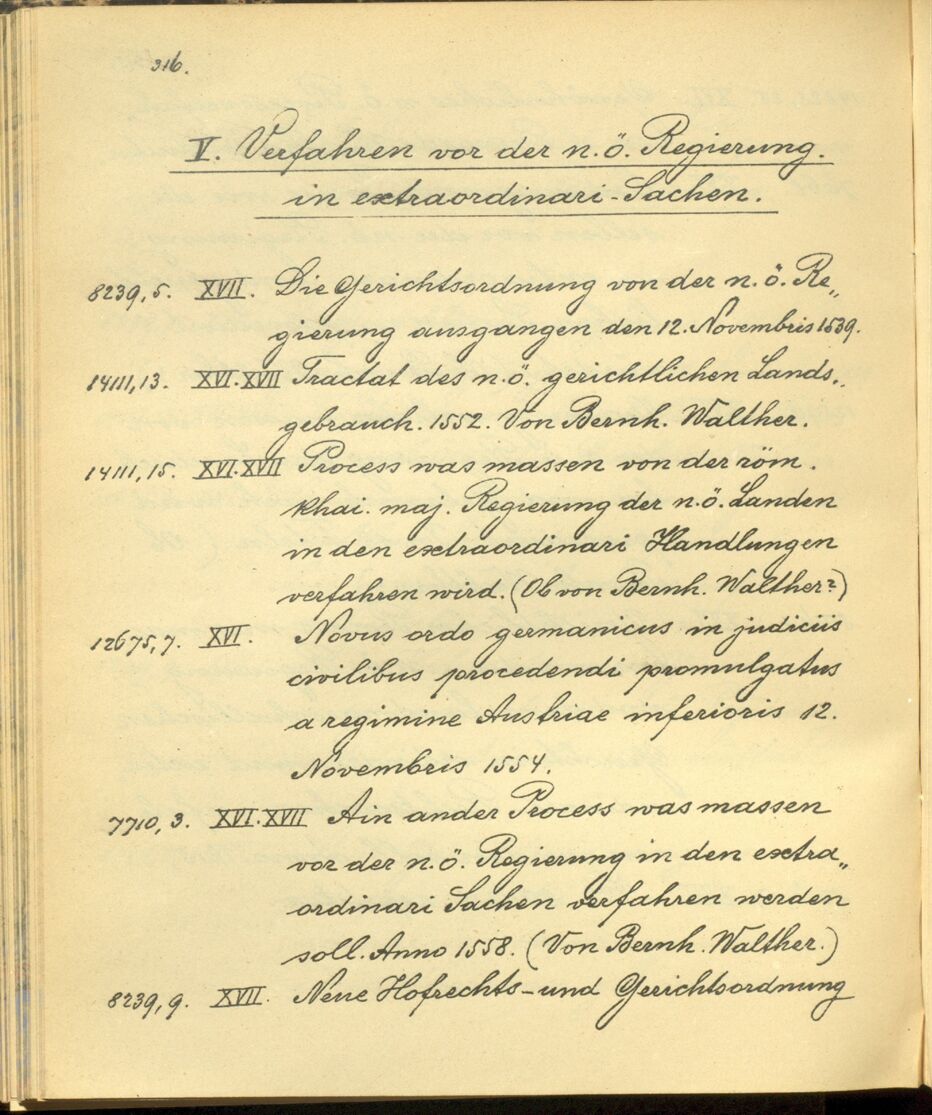 316.
V. Verfahren vor der n.ö. Regierung.
in extraordinari-Sachen.
8239,5. XVII. Die Gerichtsordnung von der n.ö. Re„
gierung ausgangen den 12. Novembris 1539.
14111,13. XVI.XVII Tractat des n.ö. gerichtlichen Lands„
gebrauch. 1552. Von Bernh. Walther.
14111,15. XVI.XVII Process was massen von der röm.
khai. maj. Regierung der n.ö. Landen
in den extraordinari Handlungen
verfahren wird. (Ob von Bernh. Walther?)
12675,7. XVI. Novus ordo germanicus in judiciis
civilibus procedendi promulgatus
a regimine Austriae inferioris 12.
Novembris 1554.
7710,3. XVI.XVII Ain ander Process was massen
vor der n.ö. Regierung in den extra„
ordinari Sachen verfahren werden
soll. Anno 1558. (Von Bernh. Walther.)
8239,9. XVII. Neue Hofrechts-und Gerichtsordnung